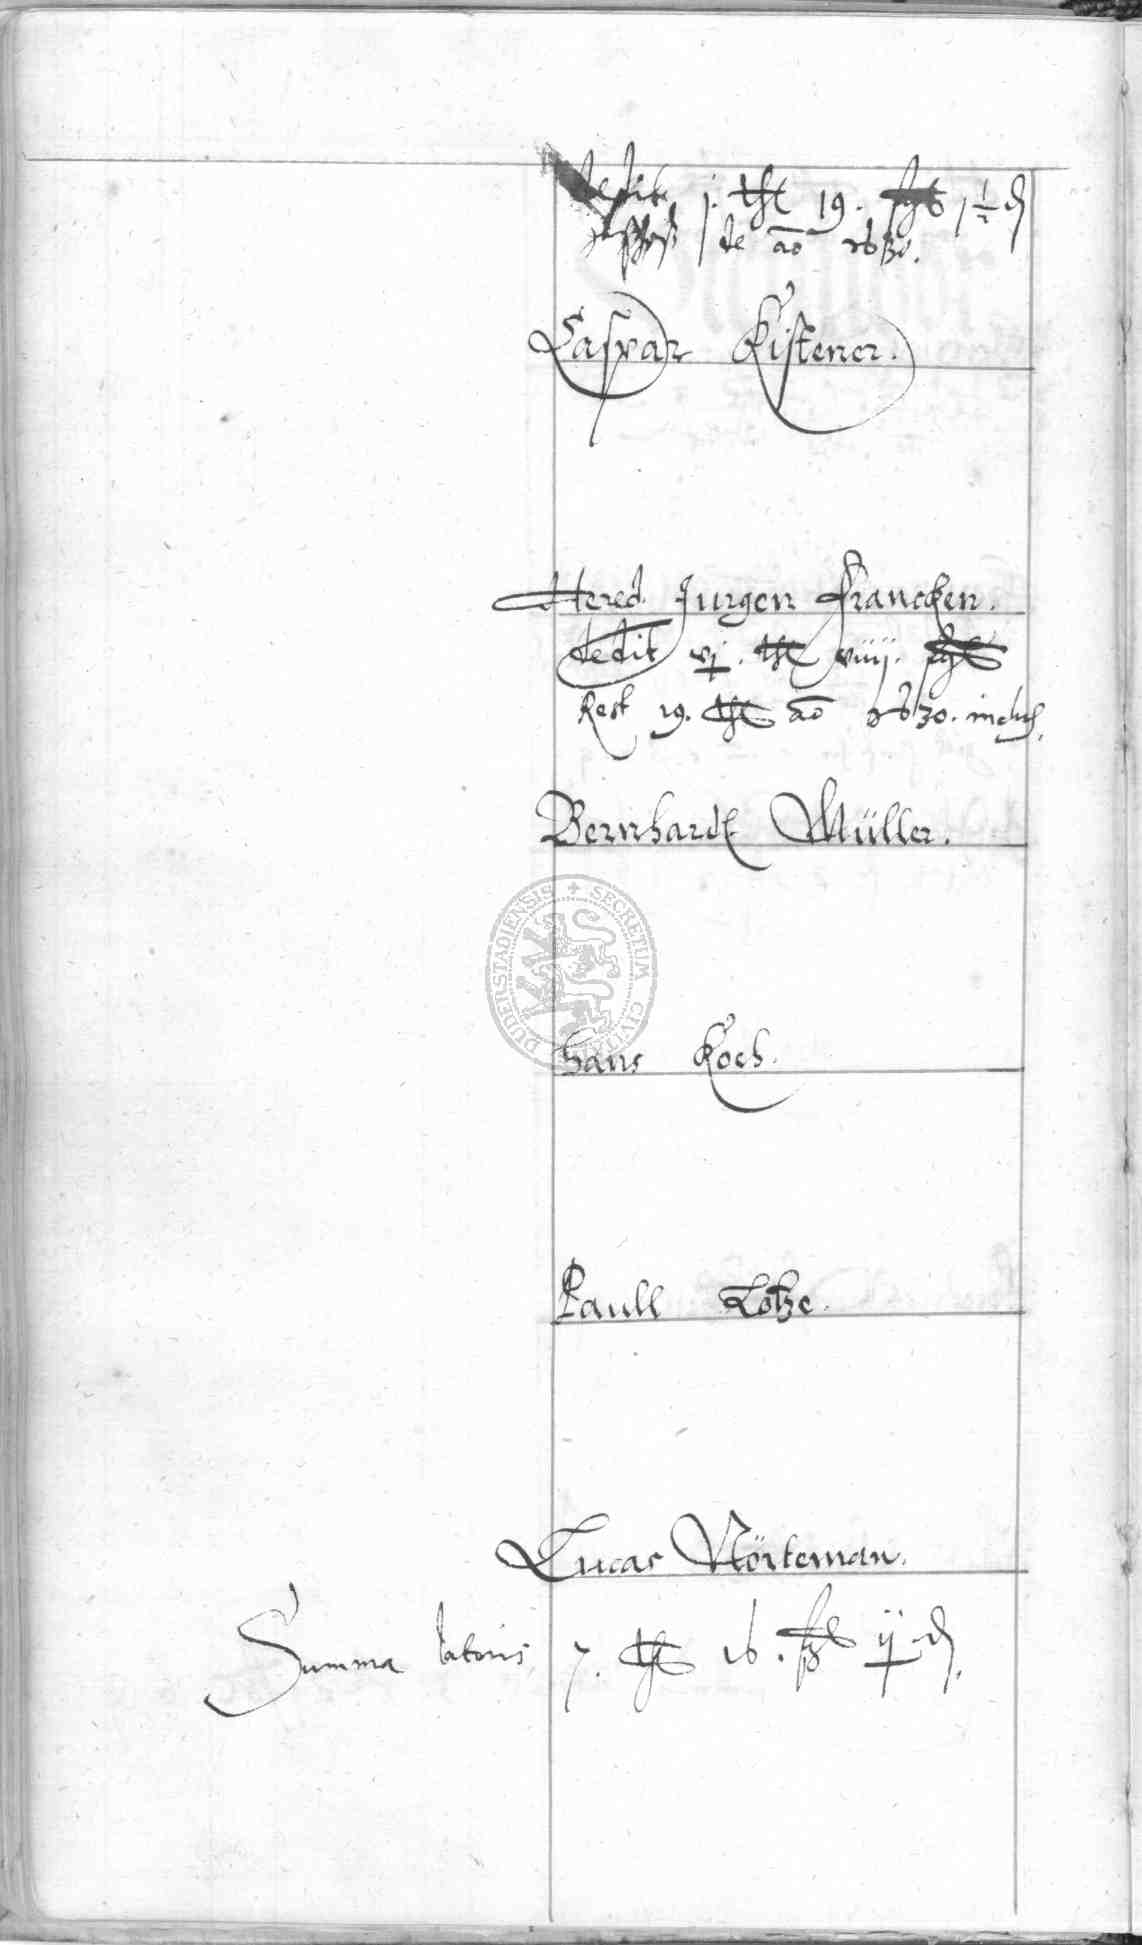 dedit j. thl 19. ßl 1 1/2 d
de ao 1630.
Caspar Kistener.
Hered. Jurgen Francken.
dedit vj. thl viiij. ßl
Rest 19. thl ao 1630. inclus.
Bernhardt Müller.
DUDERSTADIENSIS + SECRETUM CIVITATIS
Hans Koch.
Paull Lotze.
Lucas Nörteman.
Summa lateris 7. thl 16. ßl ij d.